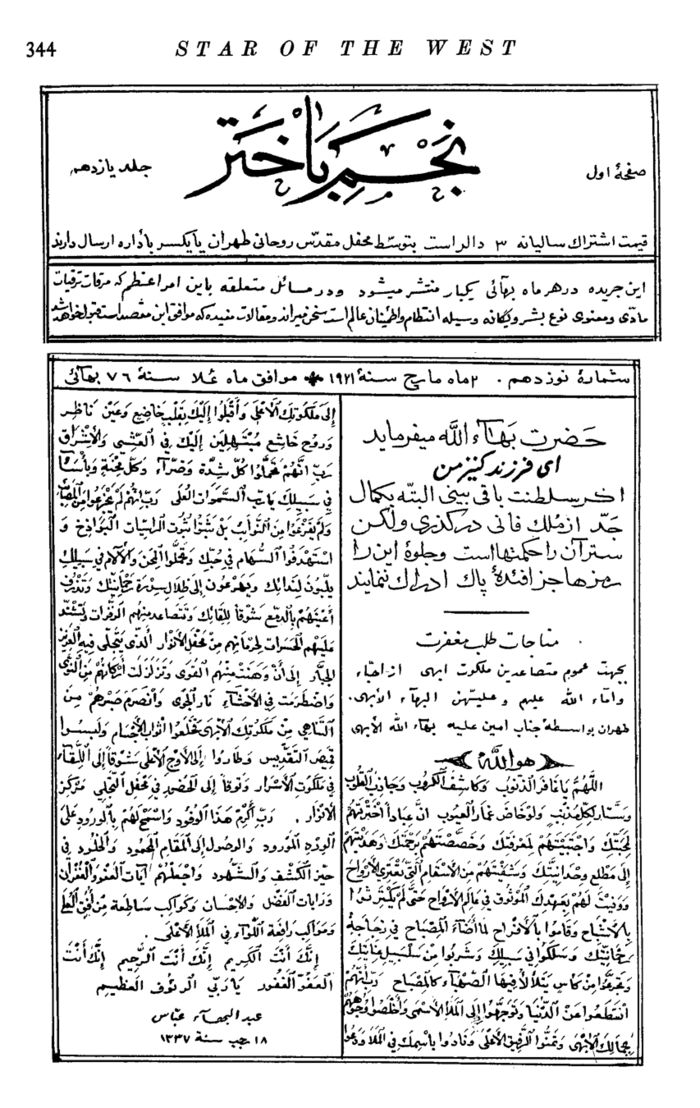 344
STAR OF THE WEST
صفحهٔ اول
نجم باختر
جلد یازدهم
قیمت اشتراك سالیانه ۳ دالر است بتوسّط محفل مقدّس روحانی طهران یا یکسر باداره ارسال دارند
این جریده در هر ماه بهائی یکبار منتشر میشود و در مسائل متعلقه باین امر اعظم که مرقات ترقیات
مادّی و معنوی نوع بشر و یگانه وسیله انتظام و اطمینان عالم است سخن میراند و مقالات مفیده که موافق این مقصد است قبول خواهد شد
شمارهٔ نوزدهم . ۲ ماه مارچ سنهٔ ۱۹۲۱ موافق ماه عُلا سنهٔ ۷۶ بهائی
حضرت بهاء الله میفرماید
ای فرزند کنیز من
اخر سلطنت باقی بینی البتّه بکمال
جدّ از ملك فانی در گذری ولکن
ستر آن را حکمتهاست و جلوهٔ این را
رمزها جز افئدهٔ پاك ادراك ننمایند
مناجات طلب مغفرت
بجهت عموم متصاعدین ملکوت ابهی از احبّاء
و اماء الله علیهم و علیهنّ البهاء الأبهی.
طهران بواسطهٔ جناب امین علیه بهآء الله الأبهی
هو الله
اللّهُمّ یا غافر الذّنوب و کاشف الکروب و جاذب القلوب
و ستّار لکلّ مذنب ولو خاض غمار العیوب انّ عباداً أخترتهم
لحبّتك و اجتبیتهم لمعرفتك و خصّصتهم برحمتك و هدیتهم
إلی مطلع وحدانیّتك و شفیتهم من الأسقام الّتی تعتری الأرواح
و وفیت لهم بعهدك الموثوق فی عالم الأرواح حتّی
بالأشباح وقاموا بالأفراح لما أضاء المصباح فی زجاجة
رحمانیّتك و سلکوا فی سبیلك و شربوا من سلسبیل عنایتك
من کأس یتلألأ فیها الصّهباء کالمصباح ربّ إنّهم
انقطعوا عن الدّنیا و توجّهوا إلی الملأ الأسمی و أخلصوا وجوههم
لجمالك الأبهی و تمنّوا الرّفیق الأعلی و نادوا باسمك فی الملأ ودعوا
إلی ملکوتك الأعلی و أقبلوا إلیك بقلب خاضع و عین ناظر
و روح خاشع مبتهلین إلیك فی العشی و الأشراق
ربّ انّهم تحمّلوا کلّ شدّة و ضرّاء و کلّ محنة و بأساء
فی سبیلك یا ربّ السّموات العلی ربّ إنّهم لم یجزعوا من المصائب
و لم یفزعوا من النّوائب بل ثبتوا ثبوت الرّاسیات البواذخ و
استهدفوا السّهام فی حبّك و تحمّلوا المحن و الآلام فی سبیلك
یلبّون لندائك و یهرعون إلی ظلال سدرة رحمانیّتك و تذرف
أعینهم بالدّمع شوقاً للقائك و تتصاعد منهم الزّفرات و تشتدّ
علیهم الحسرات لحرمانهم من محفل الأنوار الّذی یتجلّی فیه العزیز
الجبّار إلی أن وهنت منهم القوی و تزلزلت أرکانهم من النّوی
و اضطرمت فی الأحشاء نار الجوی و انصرم صبرهم من
التناهی من ملکوتك الأبهی فخلعوا أثواب الأجسام و لبسوا
قمیص التّقدیس و طاروا إلی الأوج الأعلی شوقاً إلی اللّقاء
فی ملکوت الأسرار و توقاً إلی الحضور فی محفل التّجلّی مرکز
الأنوار . ربّ أکرم هذا الوفود و اسمح لهم بالورود علی
الورد المورود و الوصول إلی المقام المحمود و الخلود فی
حیّز الکشف و الشهود و اجعلهم آیات العفو و الغفران
و رایات الفضل و الإحسان و کواکب ساطعة من أفق العلی
و مواکب رافعة اللّواء فی الملأ الأعلی.
إنّك أنت الکریم إنّك أنت الرّحیم إنّك أنت
العفوّ الغفور یا ربّی الرّئوف العظیم
عبدالبهآء عبّاس
۱۸ رجب سنة ۱۳۳۷